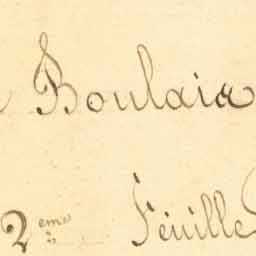 Boulaia
2eme Feuille